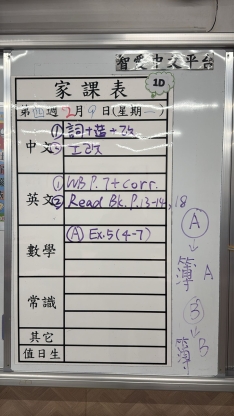 智愛中文平台
家課表
1D
第四週2月9日(星期二)
中文
①詞+造+改
②工改
英文
① WB P.7+corr.
② Read Bk. P.13-14, 18
數學
(A) Ex.5(4-7)
常識
其它
值日生
A
簿 A
3
簿 B